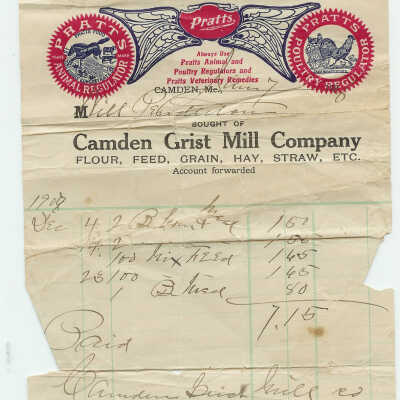 Pratts
PRATTS
PRATTS FOOD
ANIMAL REGULATOR
PRATTS
POULTRY REGULATOR
Always Use
Pratts Animal and
Poultry Regulators and
Pratts Veterinary Remedies
CAMDEN, Me., 7
M Will
BOUGHT OF
Camden Grist Mill Company
FLOUR, FEED, GRAIN, HAY, STRAW, ETC.
Account forwarded
Dec 4 2 B 1.50
2 1.50
100 Mix FEEd 1.45
23 100 1.45
1 B Meal 80
7.15
Paid
Camden Grist Mill co